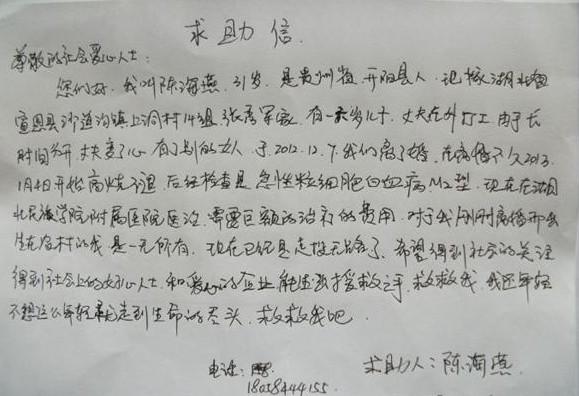 求助信.
尊敬的社会爱心人士:
您们好. 我叫陈海燕. 31岁. 是贵州省. 开阳县人. 现嫁湖北省
宣恩县沙道沟镇上洞村14组. 张彦军家. 有一 岁儿子. 丈夫在外打工. 由于长
时间分开. 丈夫变了心. 有了别的女人. 于. 2012. 12. 7. 我们离了婚. 在离婚不久2013.
1月4日开始高烧不退. 后经检查是. 急性粒细胞白血病M2型. 现在在湖
北民族学院附属医院医治. 需要巨额的治疗的费用. 对于我刚刚离婚那么
生在农村的我. 是一无所有. 现在已经是走投无路了. 希望得到社会的关注
得到社会上的好心人士. 和爱心的企业. 能过 援救之手. 救救我. 我还年轻
不想这么年轻就走到生命的尽头. 救救我吧.
电话:
18058444155.
求助人: 陈海燕.